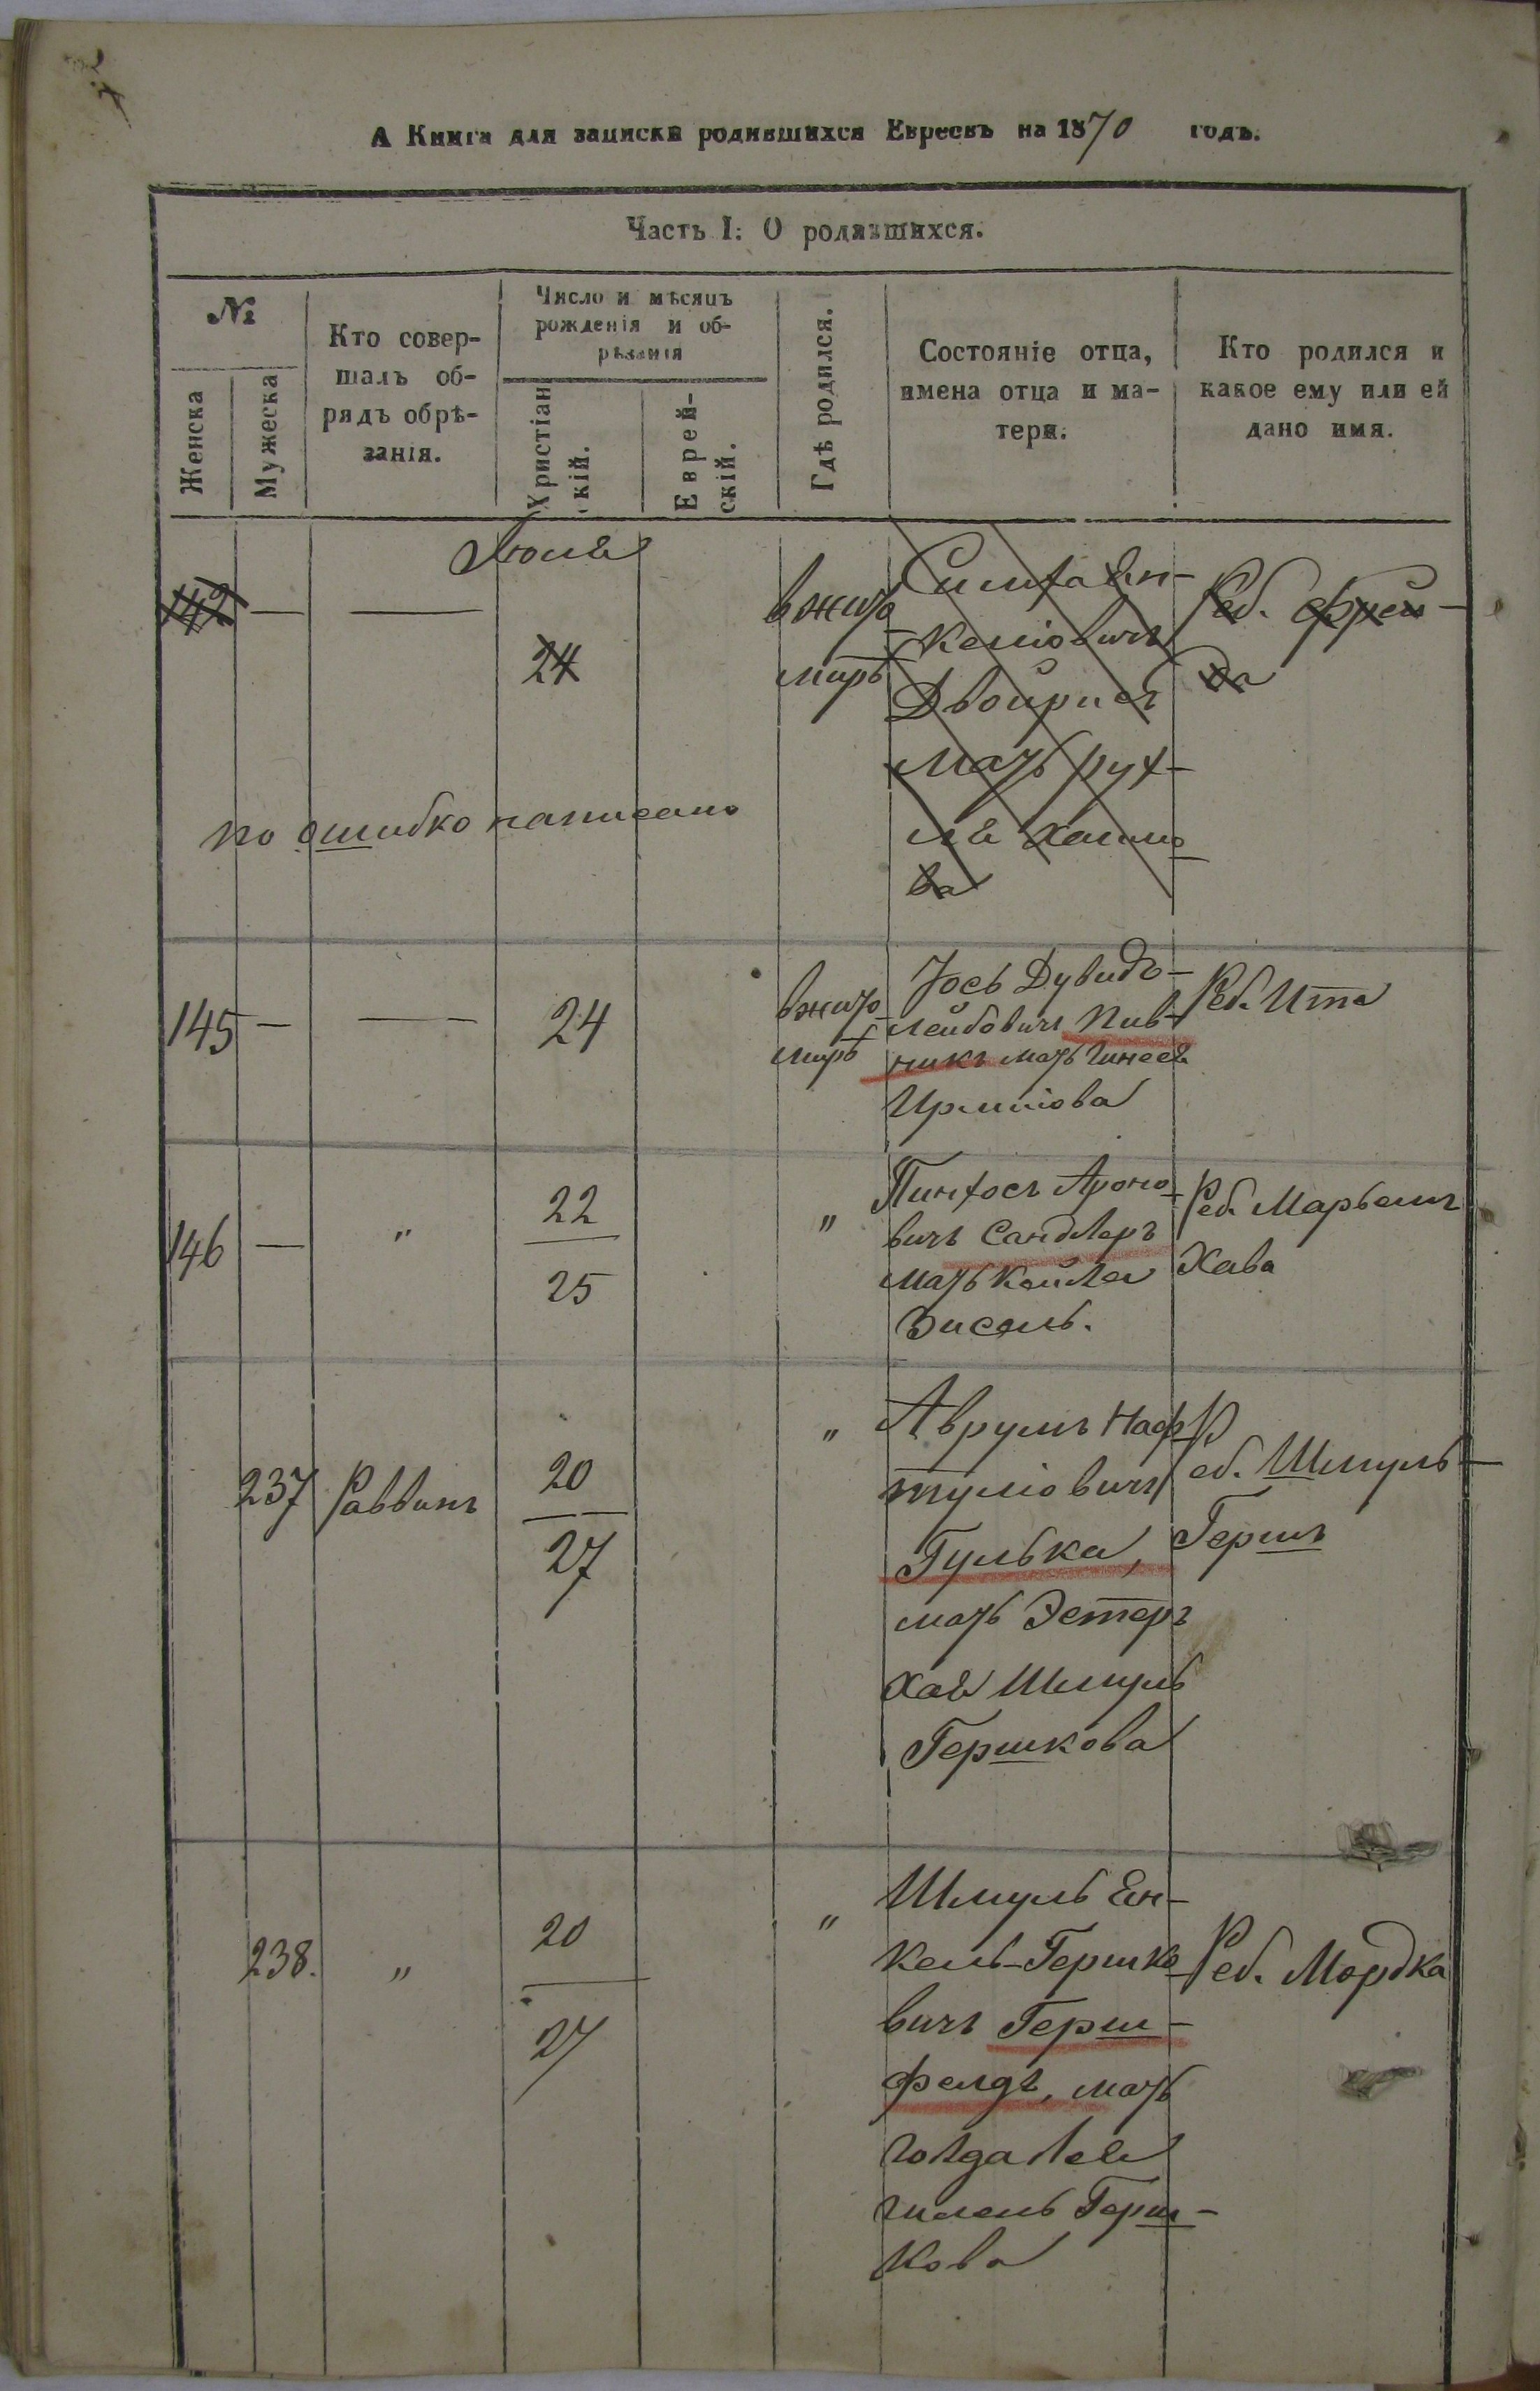 А Книга для записки родившихся Евреевъ на 1870 годъ.
Часть I: О родившихся.
№
Женска
Мужеска
Кто совер-
шалъ об-
рядъ обрѣ-
занія.
Число и мѣсяцъ
рожденія и об-
рѣзанія
Христіан
скій.
Еврей-
скій.
Гдѣ родился.
Состояніе отца,
имена отца и ма-
тери.
Кто родился и
какое ему или ей
дано имя.
Іюля
— —
24
вжито
миръ
Симха Ен-
келіовичъ
Двойрисъ
мать Рух-
ля Хаимо
ва
Реб. Фрей-
да
по ошибко написано
145 — —
24
вжито
миръ
Іось Дувидъ-
Лейбовичъ Пив-
никъ мать
Ирмиіова
Реб. Ита
146 — "
22
25
"
Пинхосъ Ароно-
вичъ Сандлеръ
мать Кейля
Зисель.
Реб. Марьемъ
Хава
237 Раввинъ
20
27
"
Аврумъ Наф-
туліовичъ
Гулька,
мать Эстеръ
Хая Шмуль
Гершкова
Реб. Шмуль-
Гершъ
238. "
20
27
"
Шмуль Ен-
кель-Гершко-
вичъ Герш-
фелдъ, мать
Герш-
кова
Реб. Мордка